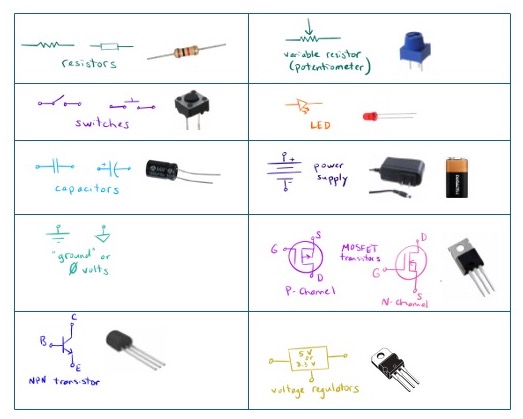 resistors
variable resistor
(potentiometer)
switches
LED
capacitors
+
+
power
supply
DURACELL
"ground" or
Ø volts
G
S
D
P-Channel
MOSFET
transistors
G
D
S
N-Channel
C
B
E
NPN transistor
5 V
or
3.3 V
voltage regulators